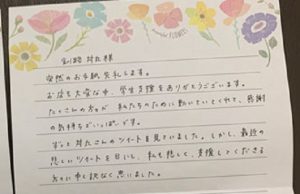 釧路 対九様
突然のお手紙失礼します。
お店も大変な中、学生支援をありがとうございます。
たくさんの方が 私たちのために動いていてくれて、感謝
の気持ちでいっぱいです。
ずっと 対九さんのツイートを見ていました。しかし、最近の
悲しいツイートを目にし、私も悲しく、支援してくださる
方々に申し訳なく思いました。